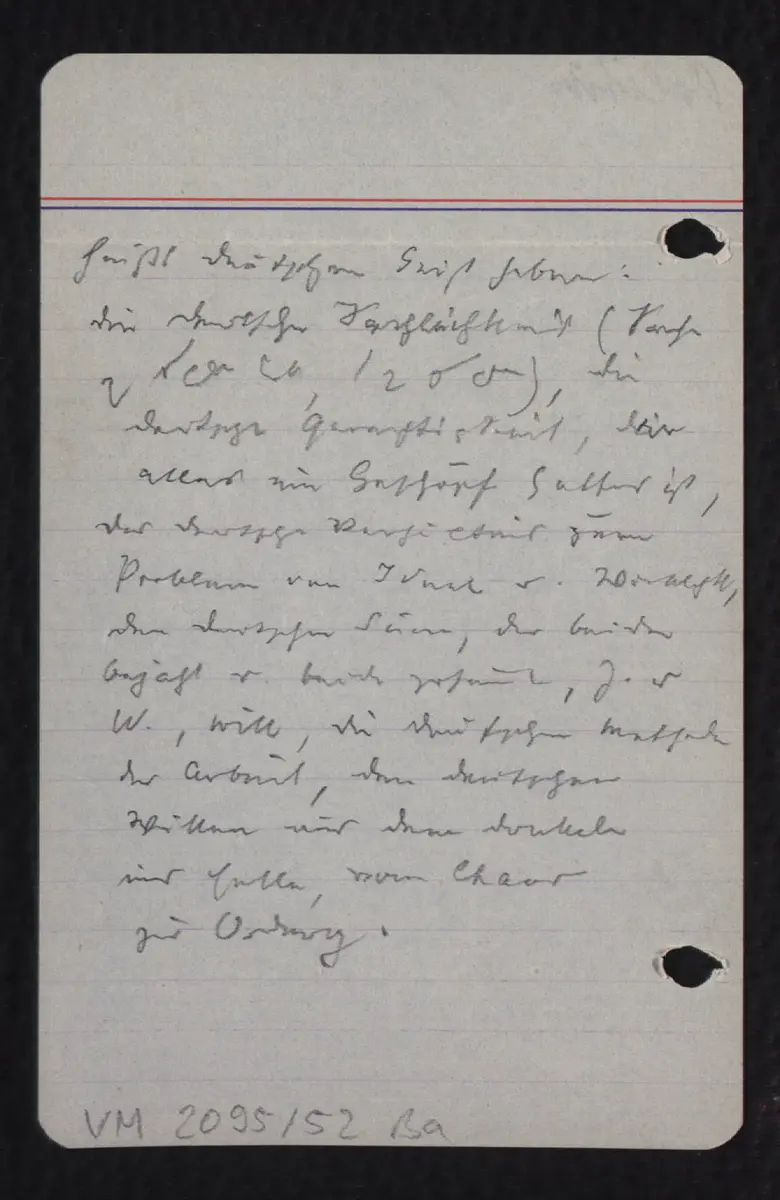 heißt deutschen Geist haben:
die deutsche (
die
deutsche Gerechtigkeit, der
alles ein Geschöpf Gottes ist,
das deutsche Verhältnis zum
Problem von Ideal u. Wirklichk,
den deutschen Sinn, der beides
bejaht u. beide geeint, J. u
W., will, die deutschen Methode
der Arbeit, den deutschen
Willen aus dem Dunkeln
ins Helle, vom Chaos
zur Ordnung.
VM 2095/52 Ba